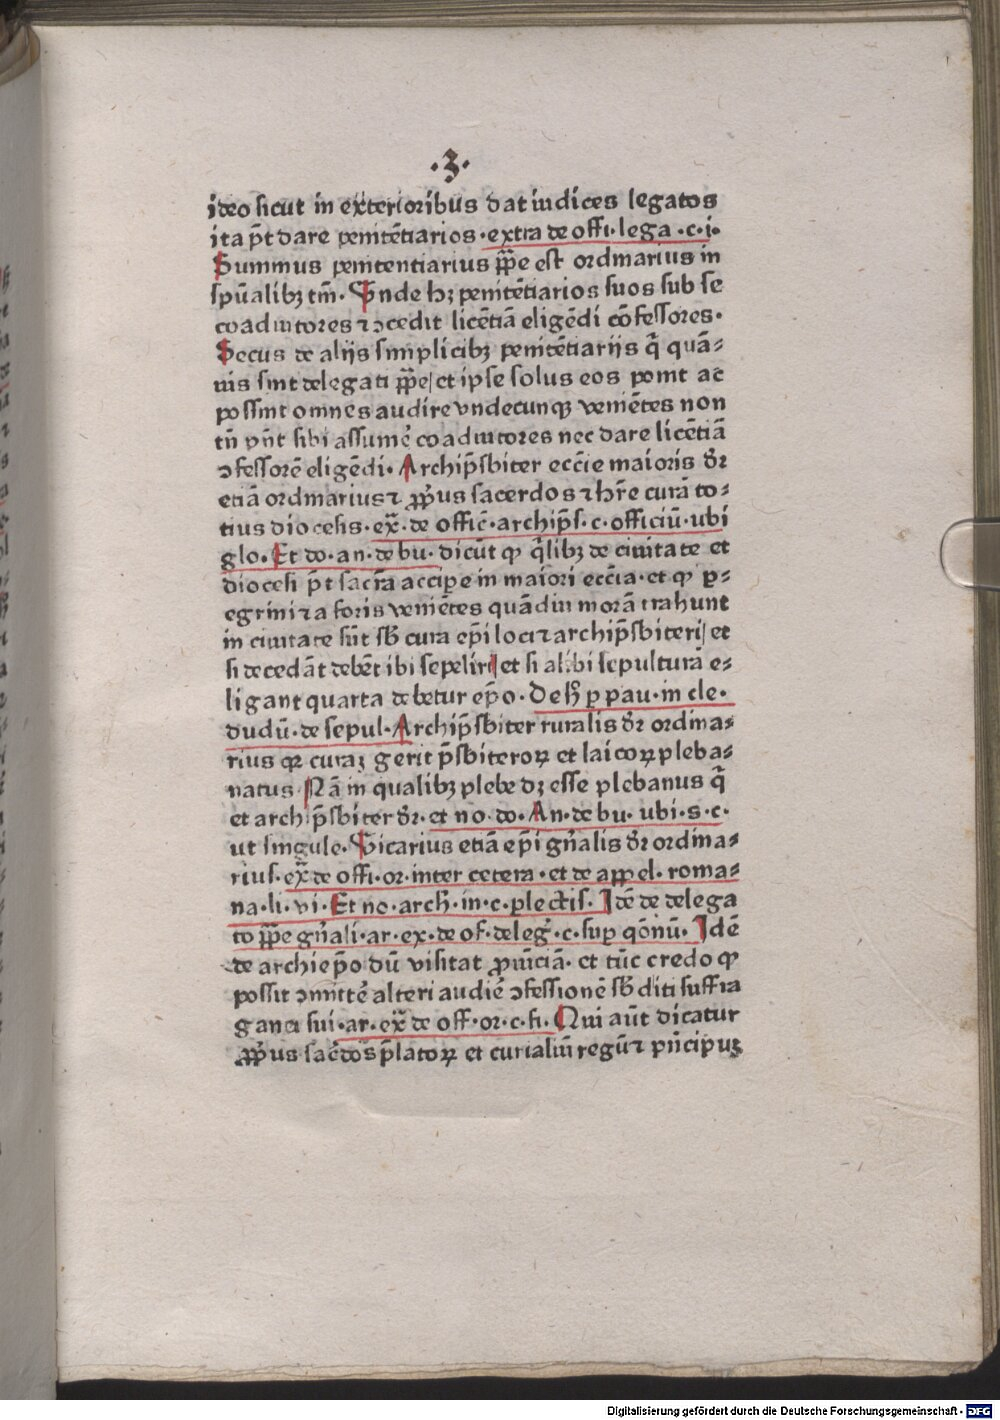 ·3·
ideo sicut in exterioribus dat iudices legatos
ita p̄t dare penitētiarios·extra de offi·lega·c·i·
Summus penitentiarius p̄p̄e est ordinarius in
sp̄ualibꝫ tm̄·Vnde hꝫ penitētiarios suos sub se
coadiutores ⁊ ↄcedit licētiā eligēdi cōfessores·
Secus de alijs simplicibꝫ penitētiarijs q̄ quā⸗
uis sint delegati p̄p̄e/et ipse solus eos ponit ac
possint omnes audire vndecunqꝫ veniētes non
tn̄ pn̄t sibi assumē coadiutores nec dare licētiā
ↄfessorē eligēdi·Archip̄sbiter eccīe maioris dr̄
etiā ordinarius ⁊ ꝓp̄us sacerdos ⁊ hr̄e curā to⸗
tius diocesis·ex̄·de offic̄·archip̄s·c·officiū·ubi
glo·Et do·an·de bu·dicūt ꝙ q̄libꝫ de ciuitate et
diocesi p̄t sacr̄a accipe in maiori eccīa·et ꝙ ꝑ⸗
egrini ⁊ a foris veniētes quādiu morā trahunt
in ciuitate sūt sb̄ cura ep̄i loci ⁊ archip̄sbiteri/et
si decedāt debēt ibi sepeliri/et si alibi sepulturā e⸗
ligant quarta debetur ep̄o·De h̄ ꝑ pau·in cle·
dudū·de sepul·Archip̄sbiter ruralis dr̄ ordina⸗
rius qꝛ curaꝫ gerit p̄sbiteroꝝ et laicoꝝ pleba⸗
natus·Nā in qualibꝫ plebe dꝫ esse plebanus q̄
et archip̄sbiter dr̄·et no·do·An·de bu·ubi·s·c·
ut singule·Vicarius etiā ep̄i gn̄alis dr̄ ordina⸗
rius·ex̄ de offi·or·inter cetera·et de appel·roma⸗
na·li·vi·Et no·arch̄·in·c·ꝑlectis·Idē de delega
to p̄p̄e gn̄ali·ar·ex·de of·deleḡ·c·suꝑ qōnū·Idē
de archiep̄o dū visitat ꝓuīciā·et tūc credo ꝙ
possit ↄmittē alteri audiē ↄfessionē sb̄diti suffra
ganei sui·ar·ex̄ de off·or·c·fi·Qui aūt dicatur
ꝓp̄us sac̄dos p̄latoꝝ et curialiū regū ⁊ pn̄cipuꝫ
Digitalisierung gefördert durch die Deutsche Forschungsgemeinschaft - DFG